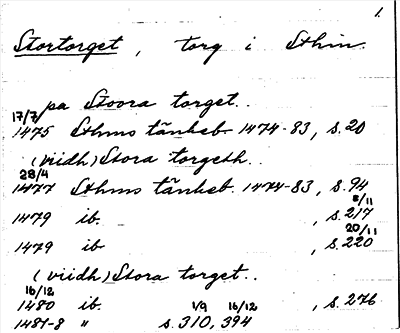 1.
Stortorget, torg i Sthlm.
pa Stoora torget..
17/7
1475 Sthms tänkeb 1474-83, s.20
(viidh) Stora torgeth..
28/4
1477 Sthms tänkeb. 1474-83, s.94
8/11
1479 ib. , s.217
20/11
1479 ib , s.220
(viidh) Stora torget..
16/12
1480 ib. , s.276
1/9 16/12
1481-8 " s.310, 394